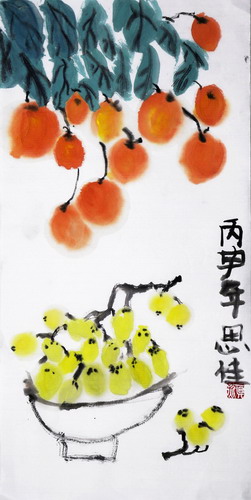 丙申年思佳